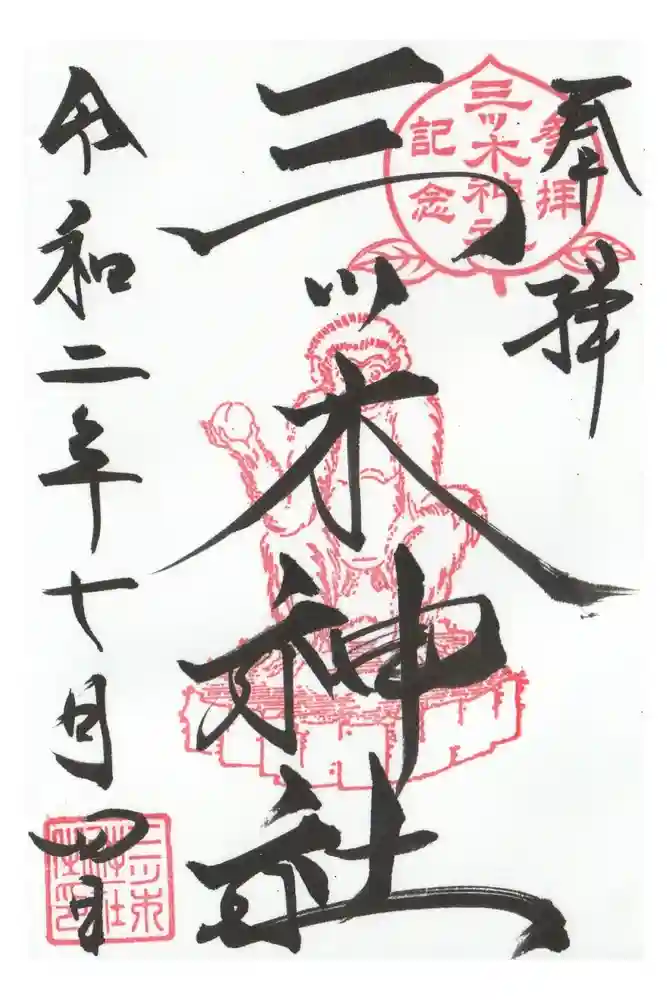 奉拝
参拝
三ツ木神社
記念
三ツ木神社
令和二年七月四日
三ツ木
神社